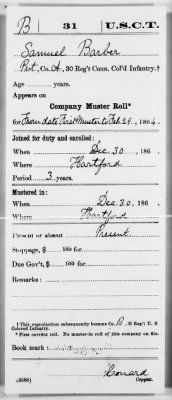 B | 31 | U.S.C.T.
Samuel Barber
Pvt, Co. A, 30 Reg't Conn. Col'd Infantry.†
Age years.
Appears on
Company Muster Roll*
for From date First Muster to Feb 29, 1864.
Joined for duty and enrolled:
When Dec. 30, 186 .
Where Hartford
Period 3 years.
Mustered in:
When Dec. 30, 186 .
Where Hartford
Present or absent Present
Stoppage, $ 100 for
Due Gov't, $ 100 for
Remarks:
† This organization subsequently became Co. B, 31 Reg't U. S.
Colored Infantry.
* First current roll. No muster-in roll of this company on file.
Book mark:
(358b)
Copyist.